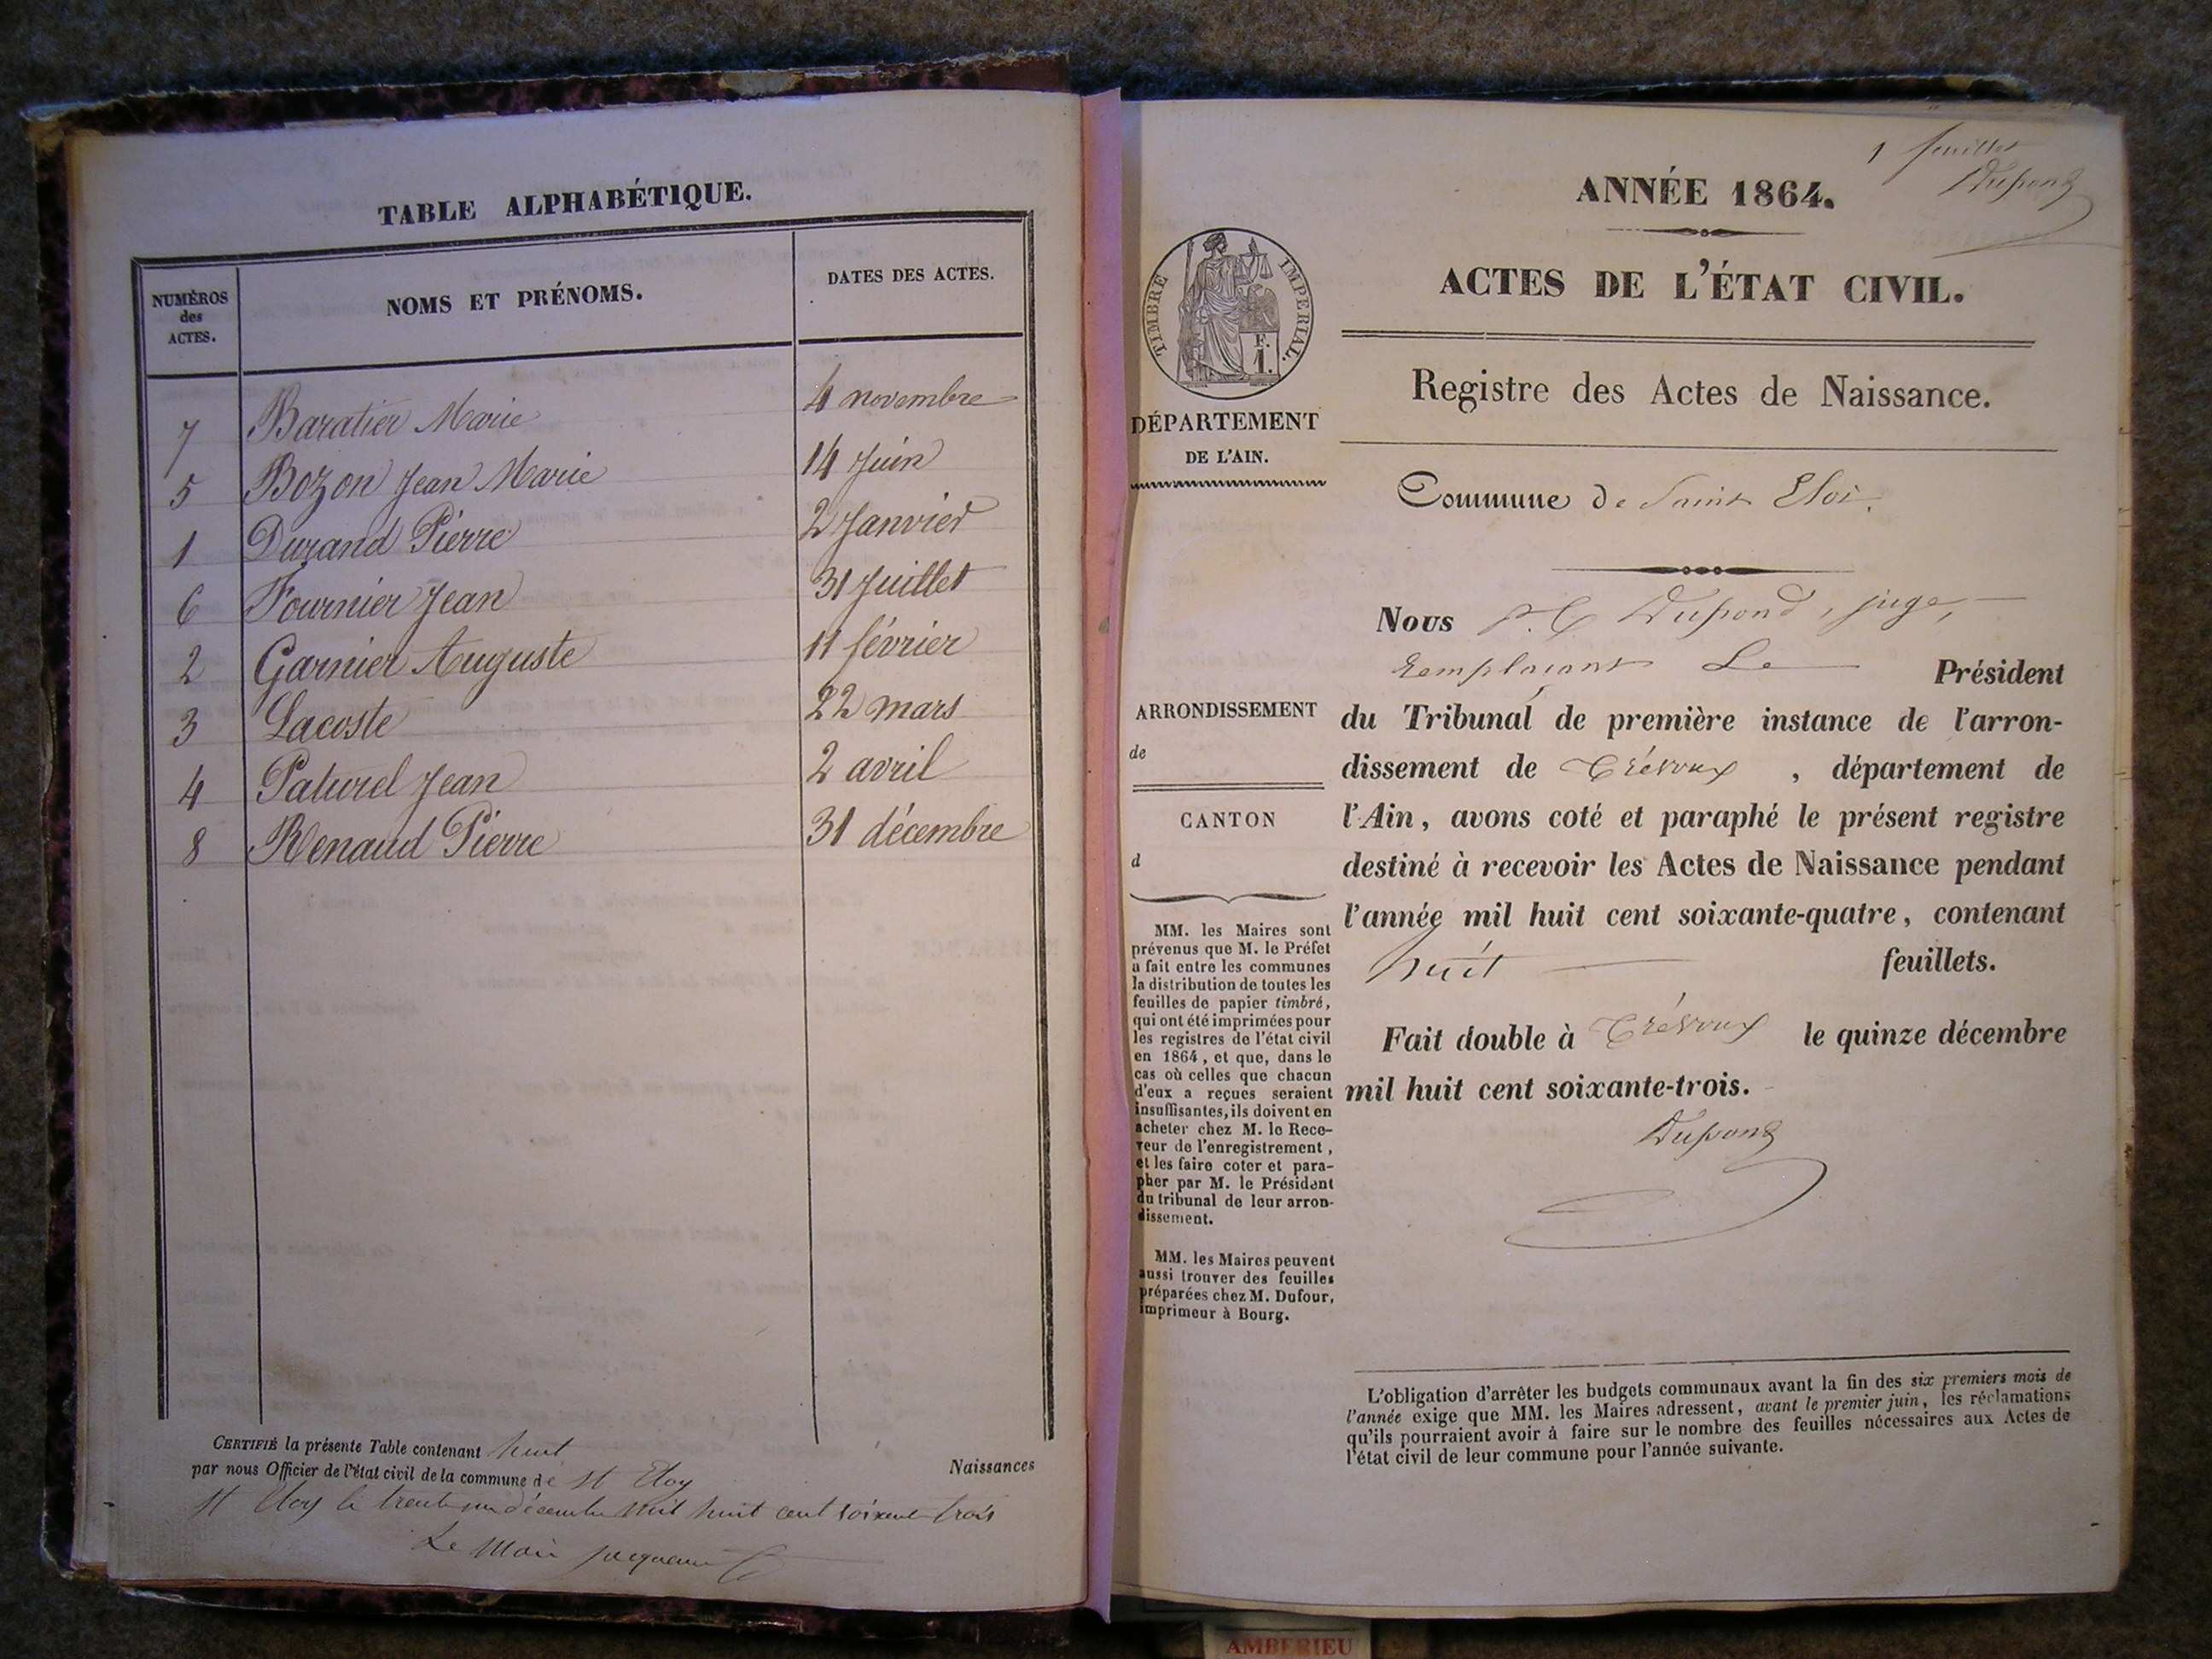 TABLE ALPHABÉTIQUE.
NUMÉROS des ACTES.
NOMS ET PRÉNOMS.
DATES DES ACTES.
7 Baratier Marie 4 novembre
5 Bozon Jean Marie 14 Juin
1 Durand Pierre 2 Janvier
6 Fournier Jean 31 Juillet
2 Garnier Auguste 11 février
3 Lacoste 22 mars
4 Paturel Jean 2 avril
8 Renaud Pierre 31 décembre
CERTIFIÉ la présente Table contenant huit Naissances
par nous Officier de l'état civil de la commune de St Eloy
St Eloy le trente un décembre mil huit cent soixante trois
Le Maire
1 feuillet
Dupond
ANNÉE 1864.
ACTES DE L'ÉTAT CIVIL.
Registre des Actes de Naissance.
Commune de Saint Eloi.
TIMBRE IMPERIAL.
F.
1.
DÉPARTEMENT
DE L'AIN.
ARRONDISSEMENT
de
CANTON
d
MM. les Maires sont
prévenus que M. le Préfet
a fait entre les communes
la distribution de toutes les
feuilles de papier timbré,
qui ont été imprimées pour
les registres de l'état civil
en 1864, et que, dans le
cas où celles que chacun
d'eux a reçues seraient
insuffisantes, ils doivent en
acheter chez M. le Rece-
veur de l'enregistrement,
et les faire coter et para-
pher par M. le Président
du tribunal de leur arron-
dissement.
MM. les Maires peuvent
aussi trouver des feuilles
préparées chez M. Dufour,
imprimeur à Bourg.
Nous Dupond, juge,
remplaçant Le Président
du Tribunal de première instance de l'arron-
dissement de Trévoux, département de
l'Ain, avons coté et paraphé le présent registre
destiné à recevoir les Actes de Naissance pendant
l'année mil huit cent soixante-quatre, contenant
huit feuillets.
Fait double à Trévoux le quinze décembre
mil huit cent soixante-trois.
Dupond
L'obligation d'arrêter les budgets communaux avant la fin des six premiers mois de
l'année exige que MM. les Maires adressent, avant le premier juin, les réclamations
qu'ils pourraient avoir à faire sur le nombre des feuilles nécessaires aux Actes de
l'état civil de leur commune pour l'année suivante.
AMBERIEU